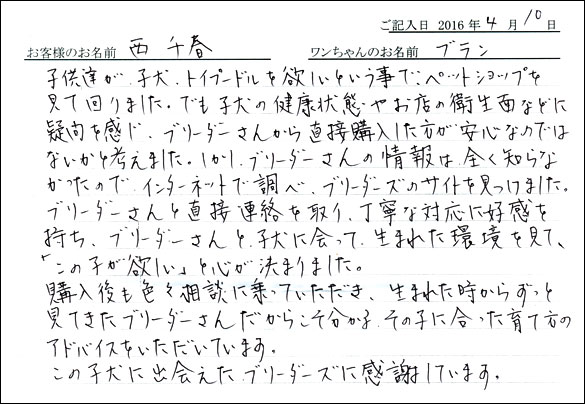 ご記入日 2016年4月10日
お客様のお名前 西 千春 ワンちゃんのお名前 ブラン
子供達が、子犬、トイプードルを欲しいという事で、ペットショップを
見て回りました。でも子犬の健康状態やお店の衛生面などに
疑問を感じ、ブリーダーさんから直接購入した方が安心なのでは
ないかと考えました。しかし、ブリーダーさんの情報は全く知らな
かったので、インターネットで調べ、ブリーダーズのサイトを見つけました。
ブリーダーさんと直接連絡を取り、丁寧な対応に好感を
持ち、ブリーダーさんと、子犬に会って、生まれた環境を見て、
「この子が欲しい」と心が決まりました。
購入後も色々相談に乗っていただき、生まれた時からずっと
見てきたブリーダーさんだからこそ分かる、その子に合った育て方の
アドバイスをいただいています。
この子犬に出会えたブリーダーズに感謝しています。